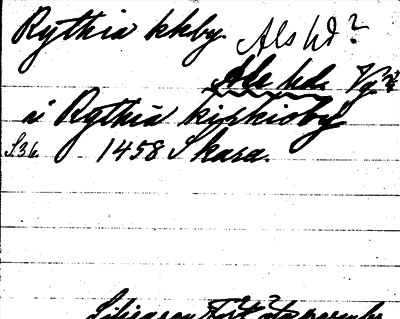 Rythia kkby. Als hd?
Ale hd. Vg
i Rythia kirkioby
S36. 1458 Skara.